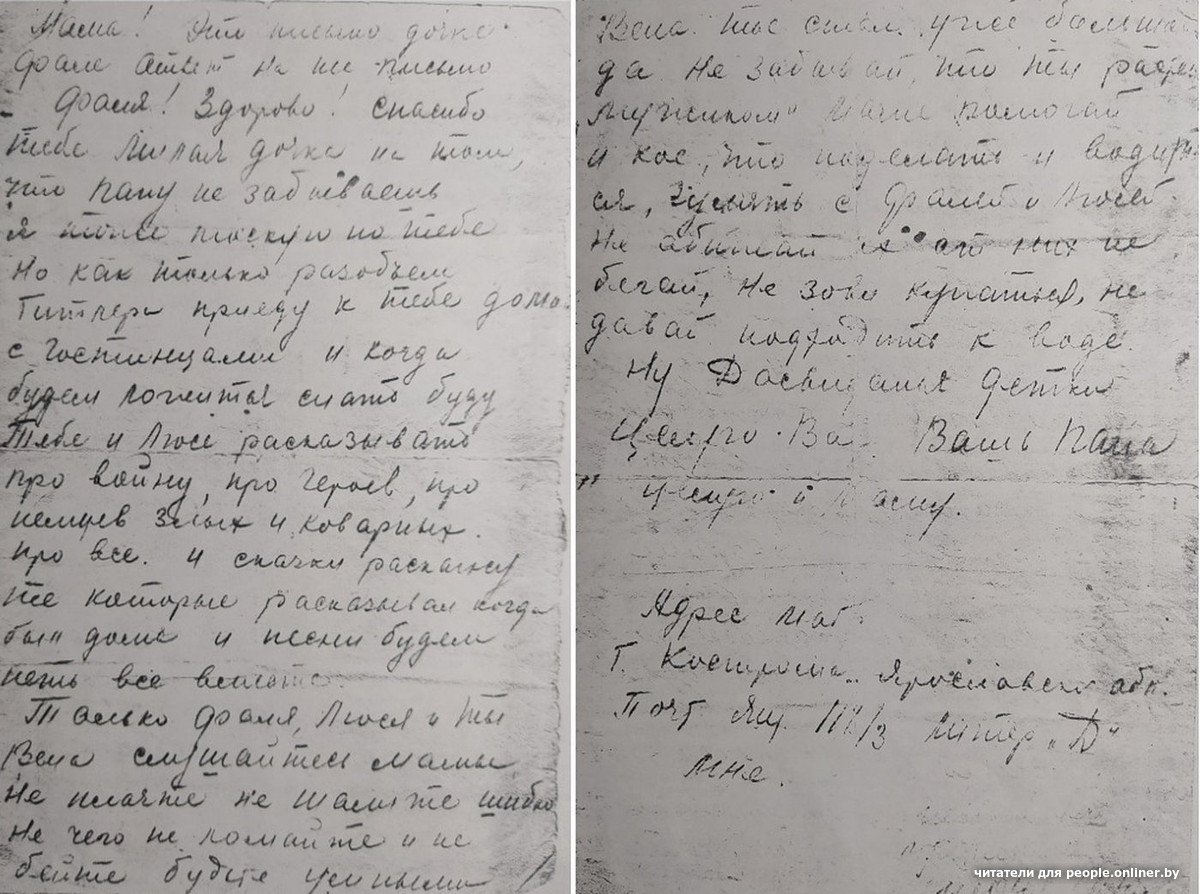 Мама! Это письмо дочке
Фале ответ на ее письмо
Фаля! Здорово! Спасибо
тебе милая дочка на том,
что папу не забываешь
я тоже тоскую по тебе
Но как только разобьем
Гитлера приеду к тебе домой
с гостинцами и когда
будем ложится спать буду
Тебе и Люсе расказывать
про войну, про героев, про
немцев злых и коварных.
про все. и сказки раскажу
те которые расказывал когда
был дома и песни будем
петь все вместе.
Только Фаля, Люся и ты
Вена слушайтесь мамы
Не плачте не шалите шибко
Не чего не ломайте и не
бейте будьте умными
Вена ты стал уже большой
да не забывай, что ты растеш
"мужиком" Маме помогай
и кое, что поделать и водит
ся, гулять с Фалей и Люсей
Не обижай их от них не
бегай, не зови купаться, не
давай подходить к воде.
Ну Досвиданья детки
Целую Вас. Вашь папа
целую и маму.
Адрес мой.
Г. Кострома. Ярославской обл.
Почт Ящ /3 литер "Д"
мне.
читатели для people.onliner.by